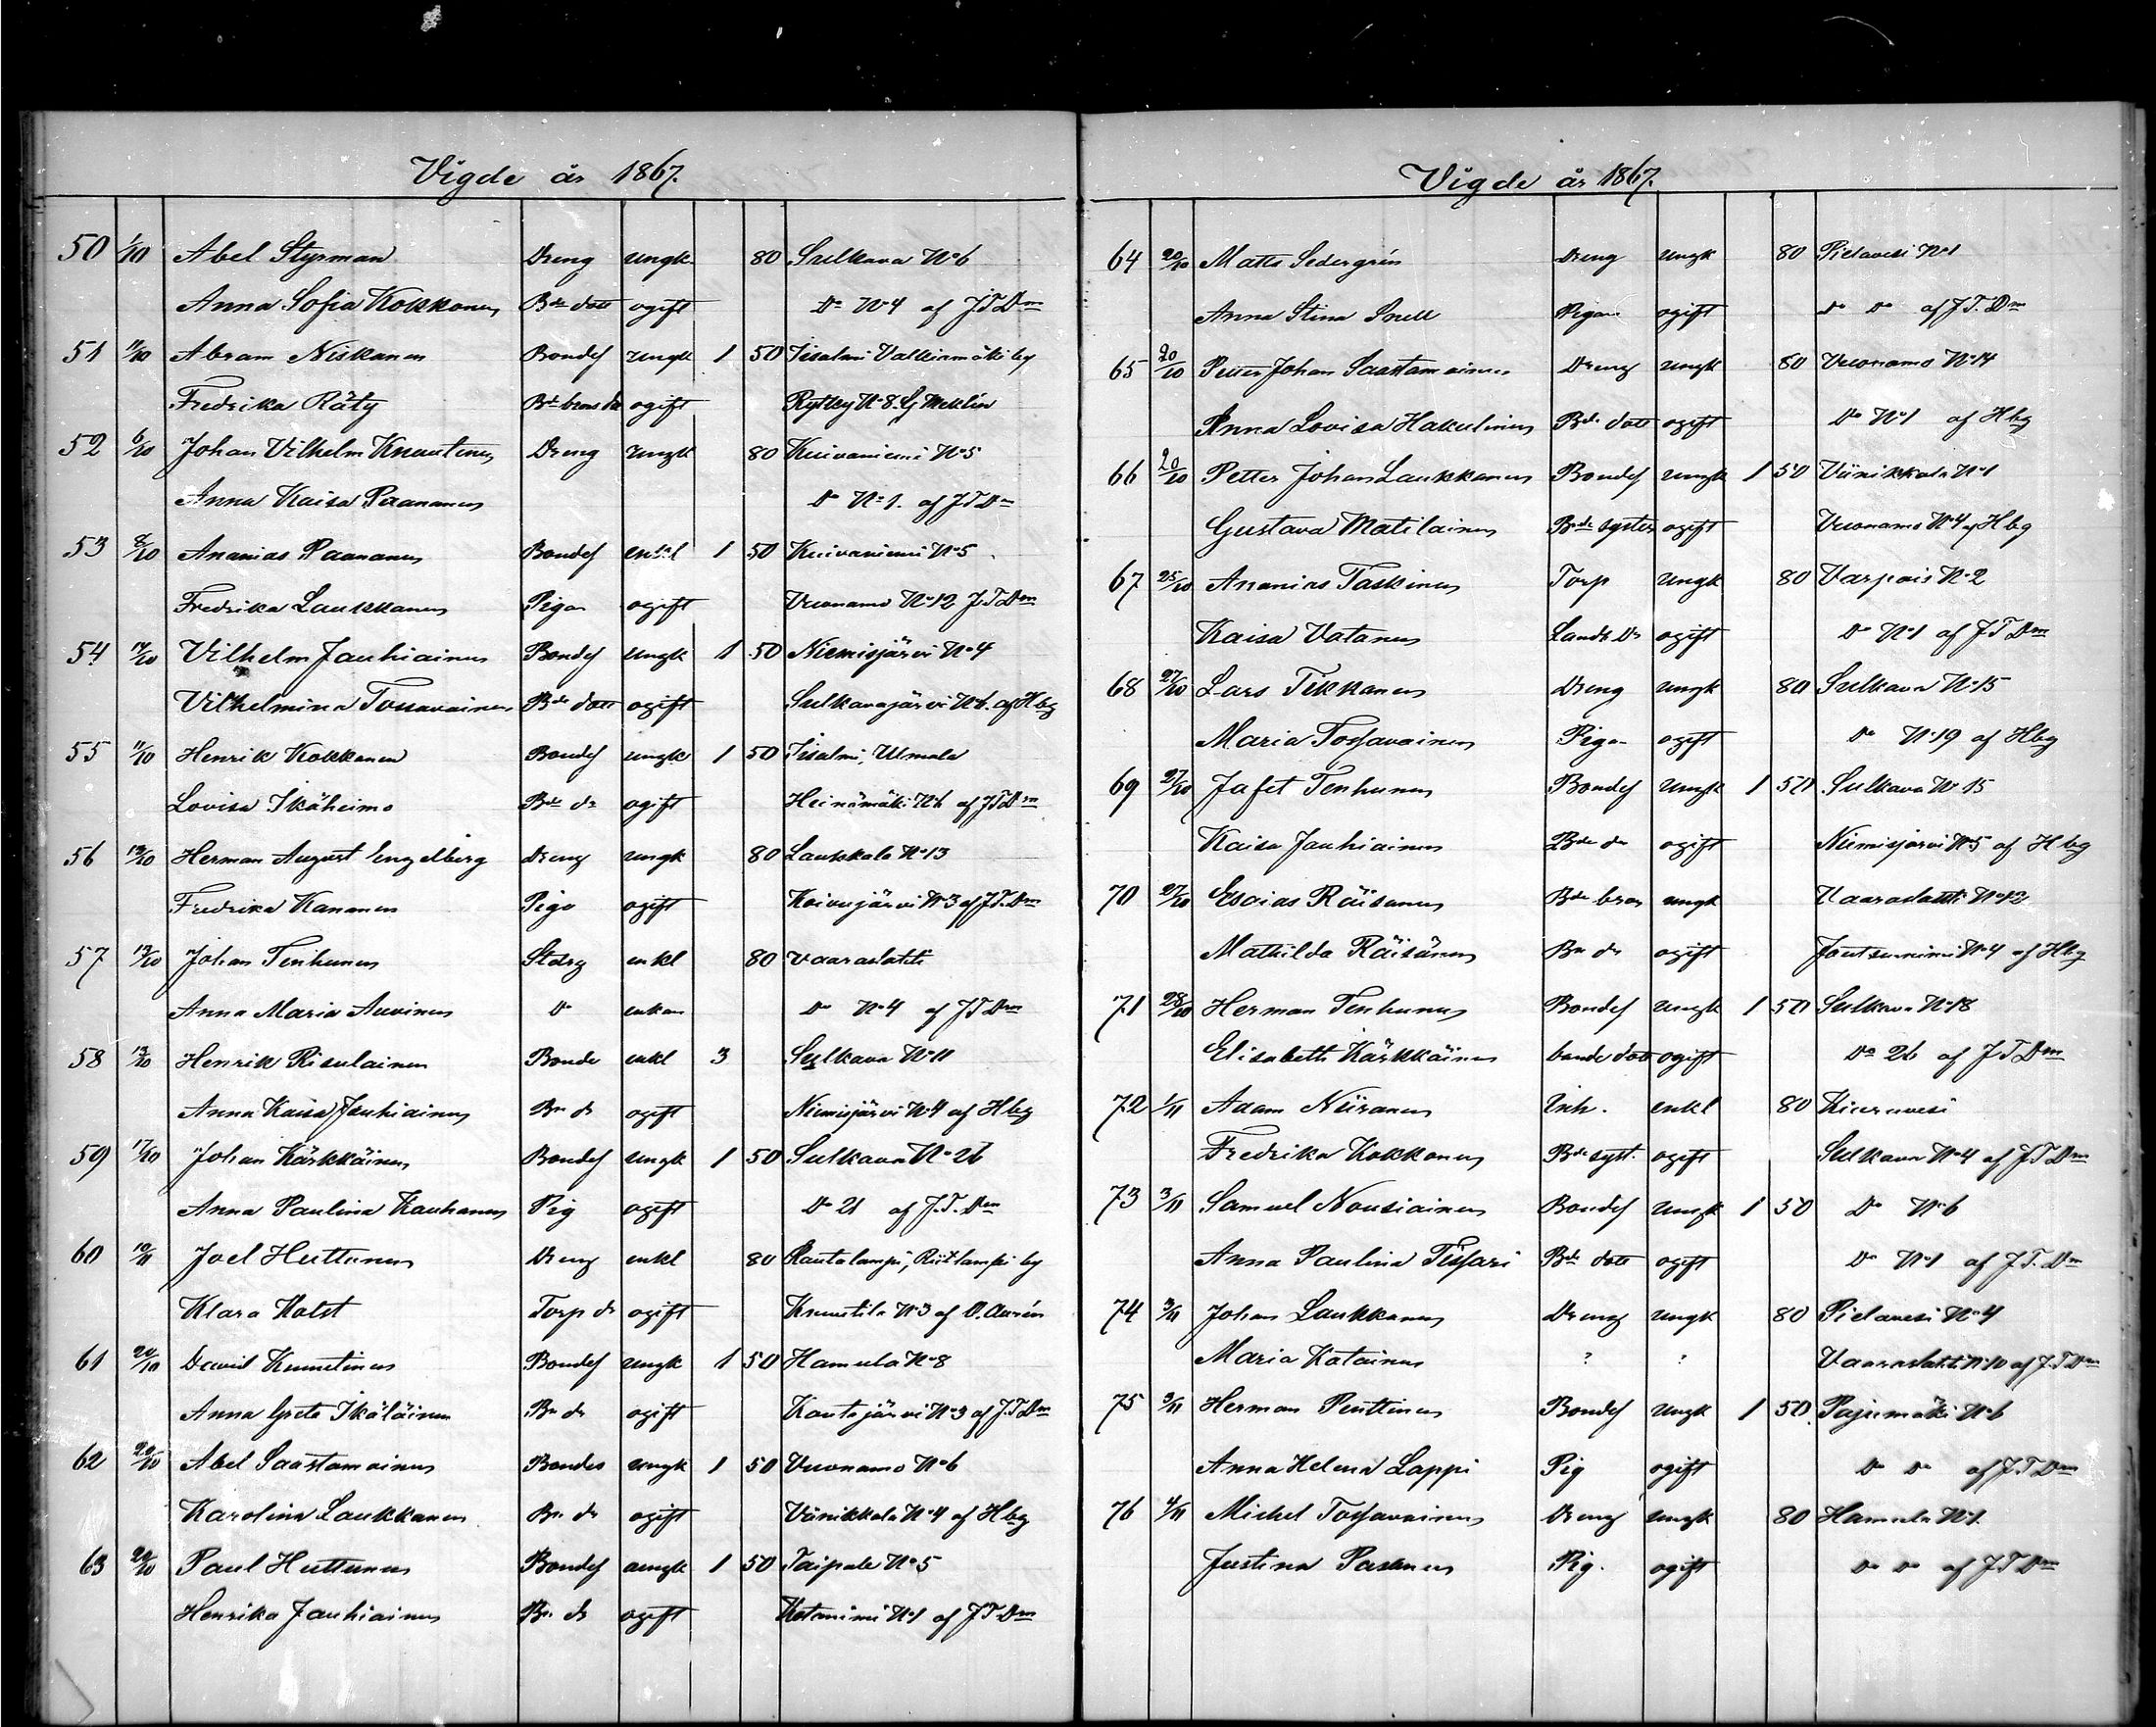 Vigde år 1867.
50 1/10 Abel Styrman Dreng ungk. 80 Sulkava No 6
Anna Sofia Kokkonen Bde dott ogift Do No 4 af J T Dm
51 11/10 Abram Niskanen Bondes ungk 1 50 Iisalmi Valkiamäki by
Fredrika Räty ogift Rytky No 8. G Meklin
52 6/10 Johan Vilhelm Knuutinen Dreng ungk 80 Kuivaniemi No 5
Anna Kaisa Paananen Do No 1. af J T Dm
53 8/10 Ananias Paananen Bondes enkl 1 50 Kuivaniemi No 5
Fredrika Laukkanen Pigan ogift Vuonamo No 12 J. T Dm
54 Vilhelm Jauhiainen Bondes ungk 1 50 Niemisjärvi No 4
Vilhelmina Tossavainen Bde dott ogift Sulkavajärvi No 6. af Hbg
55 11/10 Henrik Kokkonen Bondes ungk 1 50 Iisalmi, Ulmala
Lovisa Ikäheimo Bde dr ogift Heinämäki No 6 af J T Dm
56 13/10 Herman August Engelberg Dreng ungk 80 Laukkala No 13
Fredrika Kananen Piga ogift Koivujärvi No 3 af J T. Dm
57 13/10 Johan Tenhunen Starg enkl 80 Vaaraslahti
Anna Maria Auvinen Do enkan Do No 4 af J T Dm
58 13/10 Henrik Risulainen Bonde enkl 3 Sulkava No 11
Anna Kaisa Jauhiainen Bn dr ogift Niemisjärvi No 4 af Hbg
59 17/10 Johan Kärkkäinen Bondes ungk 1 50 Sulkava No 26
Anna Paulina Kauhanen Pig ogift Do 21 af J. T. Dm
60 Joel Huttunen Dreng enkl 80 Rautalampi, Riitlampi by
Klara Holst Torp dr ogift Knuutila No 3 af O. Aurén
61 20/10 David Knuutinen Bondes ungk 1 50 Hamula No 8
Anna Greta Ikäläinen Bn dr ogift Koutajärvi No 3 af J. T Dm
62 20/10 Abel Saastamoinen Bondes ungk 1 50 Vuonamo No 6
Karolina Laukkanen Bn dr ogift Vänikkala No 4 af Hbg
63 20/10 Paul Huttunen Bondes ungk 1 50 Taipale No 5
Henrika Jauhiainen Bn dr ogift Kotanimi No 1 af J T Dm
Vigde år 1867.
64 20/10 Matts Sedergrén Dreng ungk 80 Pielavesi No 1
Anna Stina Snell Pigan ogift Do Do af J T. Dm
65 20/10 Petter Johan Saastamoinen Dreng ungk 80 Vuonamo No 14
Anna Lovisa Hakulinen Bde dott ogift Do No 1 af Hbg
66 20/10 Petter Johan Laukkanen Bondes ungk 1 50 Vänikkala No 1
Gustava Matilainen Bde syster ogift Vuonamo No 4 af Hbg
67 25/10 Ananias Taskinen Torp ungk 80 Varpais No 2
Kaisa Vatanen Lands Dr ogift Do No 1 af J T Dm
68 27/10 Lars Tikkanen Dreng ungk 80 Sulkava No 15
Maria Tossavainen Pigan ogift Do No 19 af Hbg
69 27/10 Jafet Tenhunen Bondes ungk 1 50 Sulkava No 15
Kaisa Jauhiainen Bde dr ogift Niemisjärvi No 5 af Hbg
70 27/10 Esaias Räisänen Bde bror ungk Vaaraslahti No 12
Mathilda Räisänen Bn dr ogift Joutsenniemi No 4 af Hbg
71 28/10 Herman Tenhunen Bondes ungk 1 50 Sulkava No 18
Elisabeth Kärkkäinen bonde dott ogift Do 26 af J T Dm
72 1/11 Adam Niiranen Inh. enkl 80 Kiuruvesi
Fredrika Kokkonen Bde syst. ogift Sulkava No 4 af J T Dm
73 3/11 Samuel Nousiainen Bondes ungk 1 50 Do No 6
Anna Paulina Tissari Bde dott ogift Do No 1 af J T. Dm
74 3/11 Johan Laukkanen Dreng ungk 80 Pielavesi No 4
Maria Katainen ? ? Vaaraslahti No 10 af J. T Dm
75 3/11 Herman Penttinen Bondes ungk 1 50 Pajumäki No 6
Anna Helena Lappi Pig ogift Do Do af J. T Dm
76 4/11 Michel Tossavainen Dreng ungk 80 Hamula No 1.
Justina Pasanen Pig. ogift Do Do af J T Dm